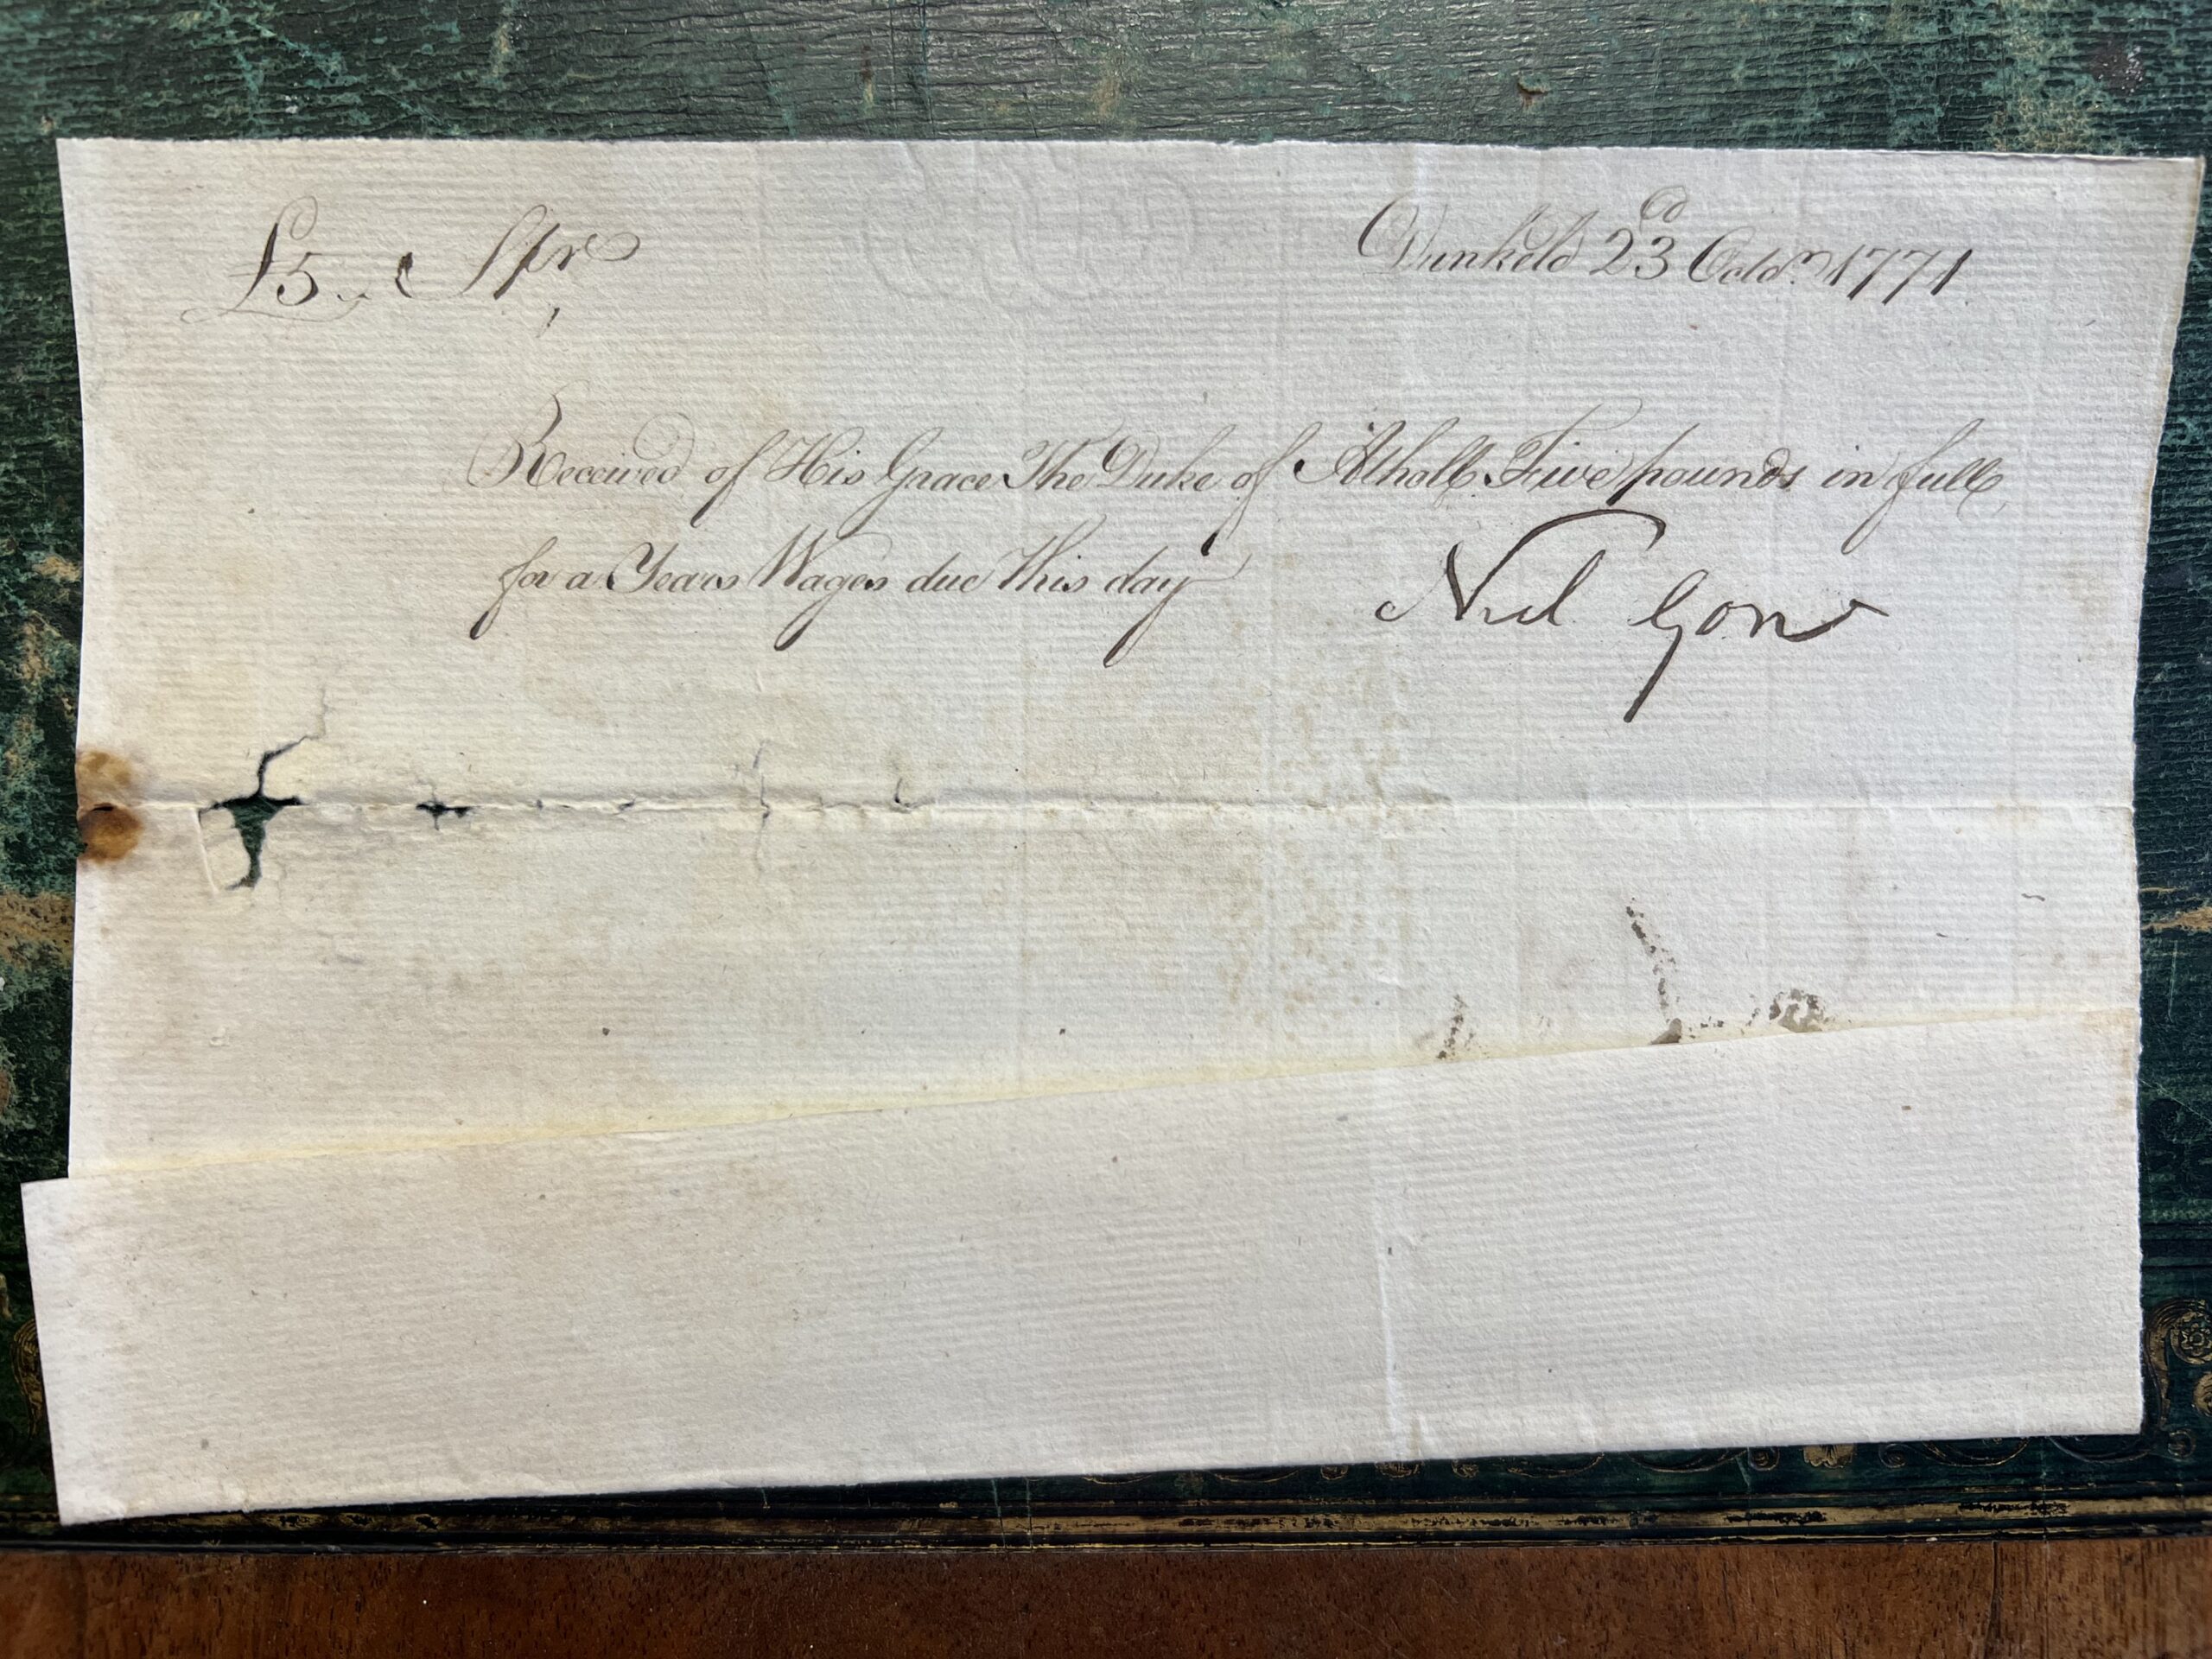 £5 Ster Dunkeld 23d Octbr 1771
Received of His Grace The Duke of Atholl Five pounds in full
for a Years Wages due This day
Neil Gow